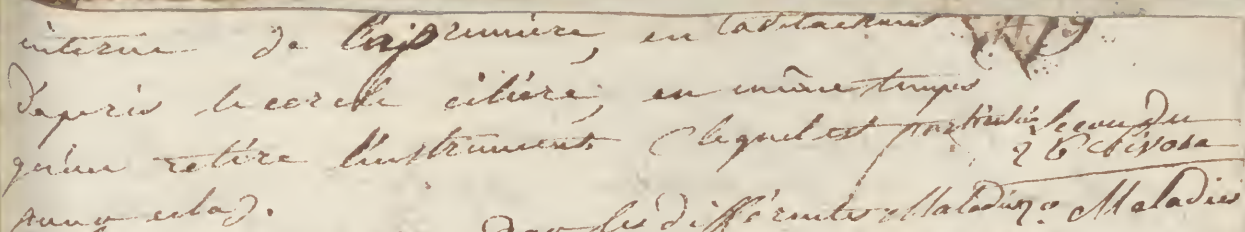 interne de la première, en la détachant 479
depuis le cercle ciliaire, en même temps
qu'on retire l'instrument (lequel est
Leçon du
26 Nivose
pour cela).
Des différentes Maladies Maladies